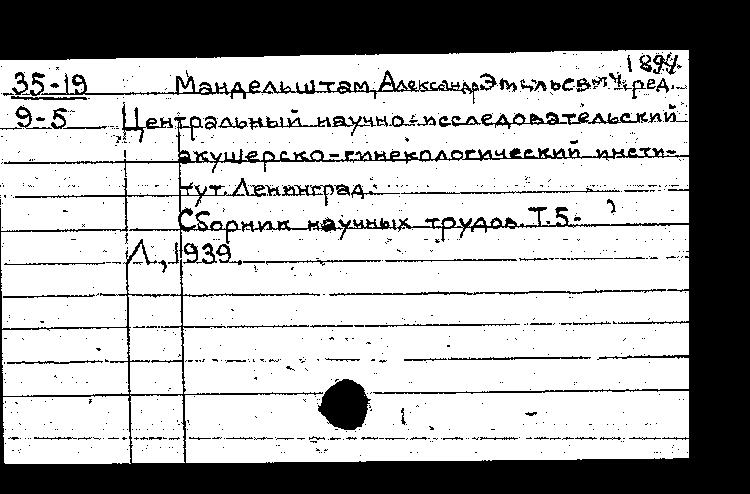 1894.
35-19 Мандельштам, Александр Эмильевич, ред.
9-5 Центральный научно-исследовательский
акушерско-гинекологический инсти-
тут. Ленинград.
Сборник научных трудов. Т.5-
Л., 1939.